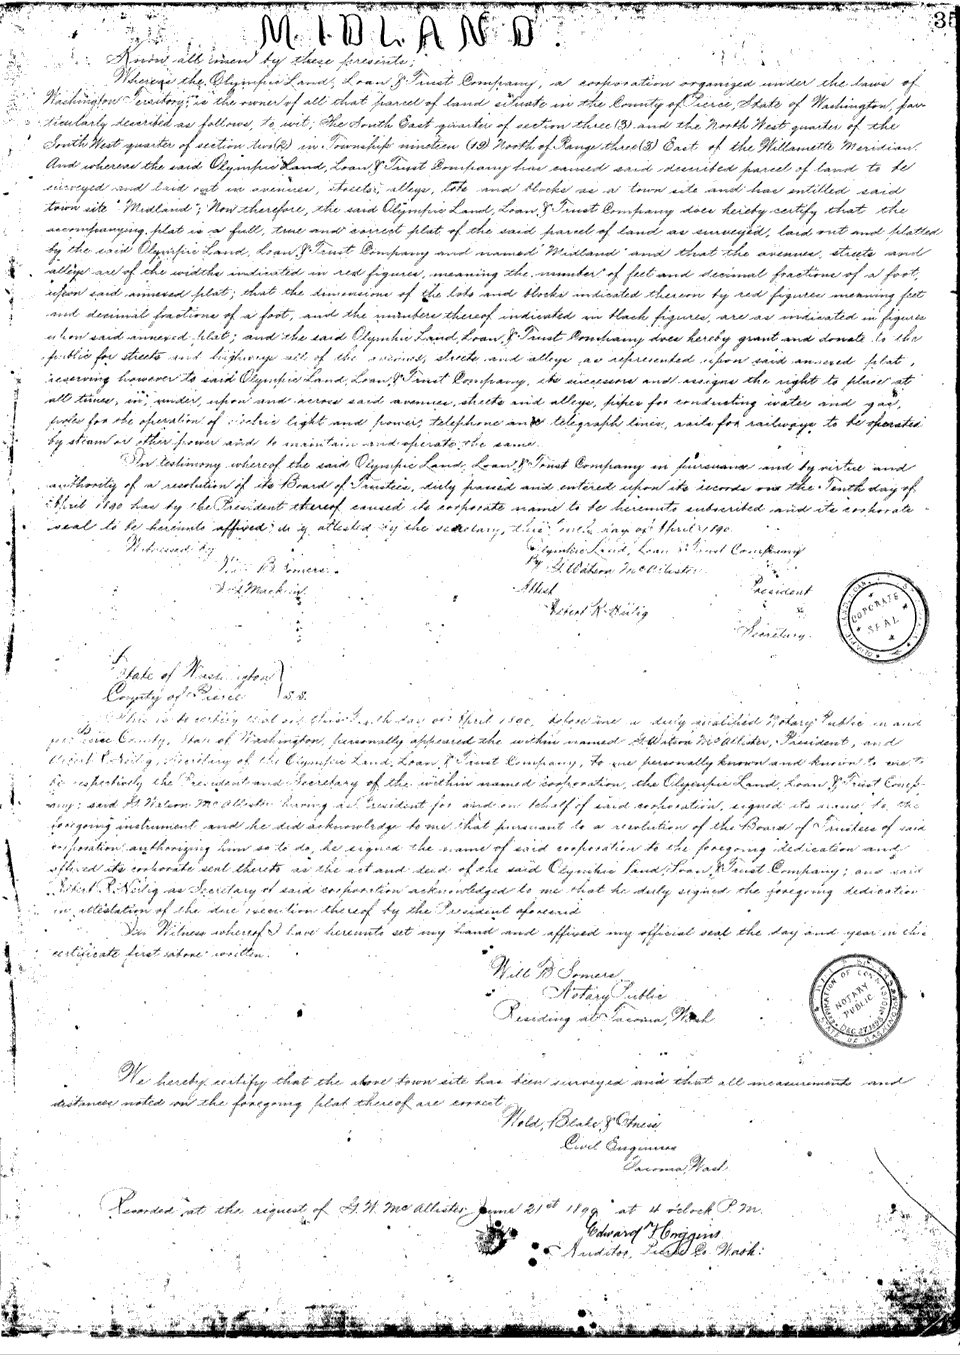 35
MIDLAND.
Know all men by these presents;
Whereas the Olympic Land, Loan, & Trust Company, a corporation organized under the laws of
Washington Territory, is the owner of all that parcel of land situate in the County of Pierce, State of Washington, par-
ticularly described as follows, to wit; The South East quarter of section three (3) and the North West quarter of the
South West quarter of section two (2) in Township nineteen (19) North of Range three (3) East of the Willamette Meridian.
And whereas the said Olympic Land, Loan, & Trust Company has caused said described parcel of land to be
surveyed and laid out in avenues, streets, alleys, lots and blocks as a town site and has entitled said
town site "Midland"; Now therefore, the said Olympic Land, Loan, & Trust Company does hereby certify that the
accompanying plat is a full, true and correct plat of the said parcel of land as surveyed, laid out and platted
by the said Olympic Land, Loan, & Trust Company and named "Midland" and that the avenues, streets and
alleys are of the widths indicated in red figures, meaning the number of feet and decimal fractions of a foot,
upon said annexed plat; that the dimensions of the lots and blocks indicated thereon by red figures meaning feet
and decimal fractions of a foot, and the numbers thereof indicated in black figures, are as indicated in figures
upon said annexed plat; and the said Olympic Land, Loan, & Trust Company does hereby grant and donate to the
public for streets and highways all of the avenues, streets and alleys, as represented upon said annexed plat,
reserving however to said Olympic Land, Loan, & Trust Company, its successors and assigns the right to place at
all times, in, under, upon and across said avenues, streets and alleys, pipes for conducting water and gas,
poles for the operation of electric light and power, telephone and telegraph lines, rails for railways to be operated
by steam or other power and to maintain and operate the same.
In testimony whereof the said Olympic Land, Loan, & Trust Company in pursuance and by virtue and
authority of a resolution of its Board of Trustees, duly passed and entered upon its records on the Tenth day of
April 1890 has by the President thereof caused its corporate name to be hereunto subscribed and its corporate
seal to be hereunto affixed & attested by the secretary, this day of April 1890.
Witnessed by Olympic Land, Loan & Trust Company
Will B. Somers. By G. Watson McAllister
Mackin Attest President
Robert R. Heilig
Secretary.
CORPORATE SEAL
State of Washington
County of Pierce } S.S.
This is to certify that on this Tenth day of April 1890, before me a duly qualified Notary Public in and
for Pierce County, State of Washington, personally appeared the within named G. Watson McAllister, President, and
Robert R. Heilig, Secretary of the Olympic Land, Loan, & Trust Company, to me personally known and known to me to
be respectively the President and Secretary of the within named corporation, the Olympic Land, Loan, & Trust Comp-
any; said G. Watson McAllister having as President for and on behalf of said corporation, signed its name to the
foregoing instrument and he did acknowledge to me that pursuant to a resolution of the Board of Trustees of said
corporation authorizing him so to do, he signed the name of said corporation to the foregoing dedication and
affixed its corporate seal thereto as the act and deed of the said Olympic Land Loan, & Trust Company; and said
Robert R. Heilig as Secretary of said corporation acknowledged to me that he duly signed the foregoing dedication
in attestation of the due execution thereof by the President aforesaid
In Witness whereof I have hereunto set my hand and affixed my official seal the day and year in this
certificate first above written.
Will B Somers
Notary Public
Residing at Tacoma, Wash
NOTARY PUBLIC
We hereby certify that the above town site has been surveyed and that all measurements and
distances noted on the foregoing plat thereof are correct
Wold, Blake, &
Civil Engineers
Tacoma, Wash
Recorded at the request of G. W. McAllister June 21st 1890 at 4 o'clock P.M.
Edward Huggins
Auditor, Pierce Co. Wash: